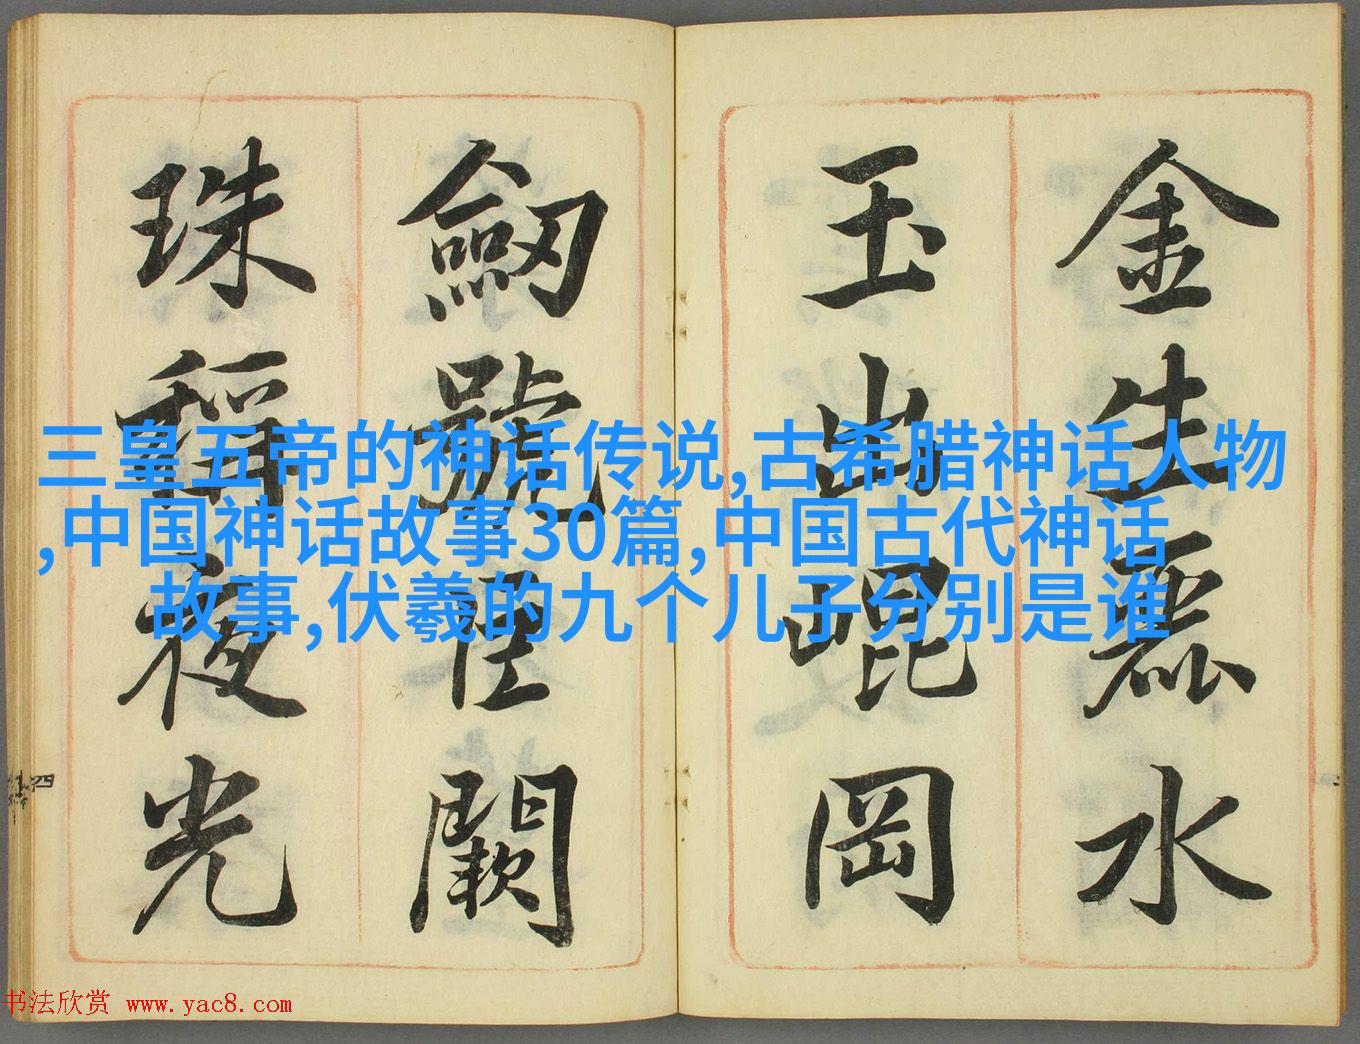 金生麗水
玉出崐岡
劒號巨闕
珠稱夜光
三皇五帝的神话传说,古希腊神话人物
,中国神话故事30篇,中国古代神话
故事,伏羲的九个儿子分别是谁
书法欣赏 www.yac8.com